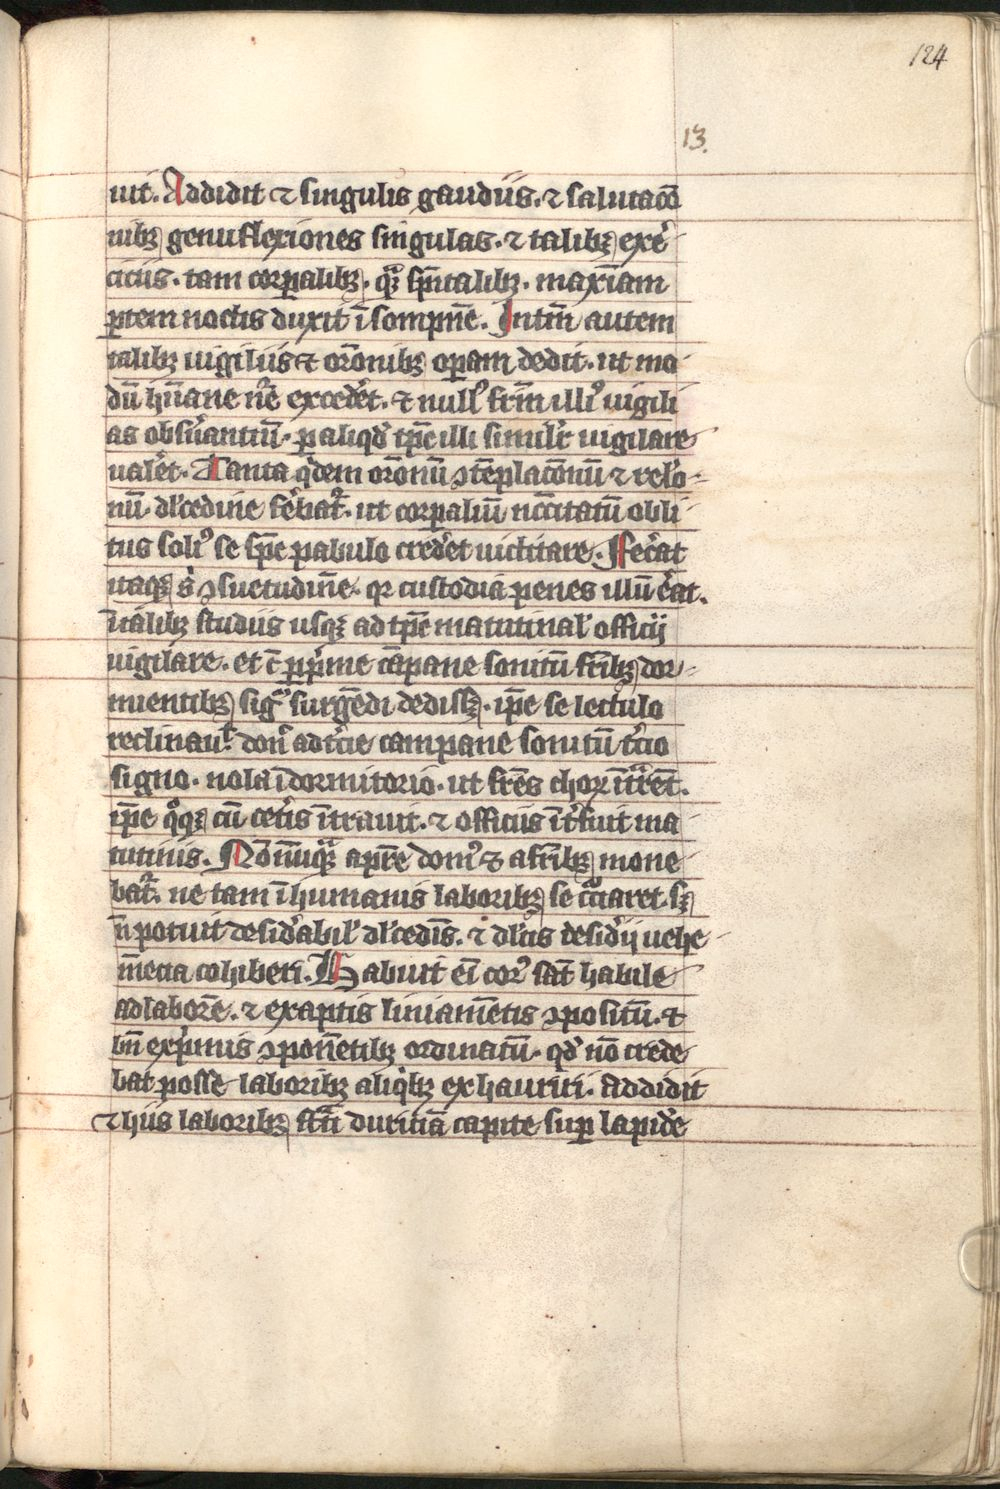 124
13.
uit. Addidit ⁊ singulis gaudiis. ⁊ salutacō
nibꝫ genuflexiones singulas. ⁊ talibꝫ exer̄
citiis. tam corꝑalibꝫ. qͣꝫ sp̄ualibꝫ. maxīam
ꝑtem noctis duxit ī sompnē. Intm̄ autem
talibꝫ uigiliis ⁊ orōnibꝫ oꝑam dedit. ut mo
dū hūane nr̄e excedēt. ⁊ null᷒ frm̄ illi᷒ uigili
as obs̄uantiū. ꝑ aliqd̄ tp̄e illi simulr̄ uigilare
ualēt. Tanta qͥdem orōnū ꝯtēplacōnū ⁊ relō
nū. dl̄cedine fēbat᷑. ut corꝑaliū nccītatū obli
tus soli᷒ se spē pabulo credēt uictitare. Fec̄at
itaqꝫ s̄ ꝯsuetudinē. qꝛ custodia penes illū ēat.
ī talibꝫ studiis usqꝫ ad tp̄e matutinal̄ officij
uigilare. et c̄ ꝑ pͥme cāpane sonitū frībꝫ dor
mientibꝫ sigͫ surgēdi dedissꝫ. ip̄e se lectulo
reclinauit. don̄ ad t̄cie campane sonitū t̄cio
signo. nola ī dormitorio. ut frēs choꝝ ītͣrent.
ip̄e qͦqꝫ cū cet̄is ītrauit. ⁊ officiis īt̄fuit ma
tutinis. Nōnūqͣꝫ a pre dom᷒ ⁊ a frībꝫ mone
bat᷑. ne tam ī humanis laboribꝫ se cͦciaret. sꝫ
n̄ potuit desid̄abil̄ dl̄cedīs. ⁊ dl̄cis desid̄ij uehe
mēcia cohiberi. Habuit ei᷒ cor᷒ sāt habile
ad laborē. ⁊ ex aptis liniamētis ꝯpositū. ⁊
bn̄ expͥmis ꝯponētibꝫ ordinatū. qd̄ nō crede
bat posse laboribꝫ aliqͥbꝫ exhauriri. Addidit
⁊ hiis laboribꝫ stͣti duritiā capite suꝑ lapide